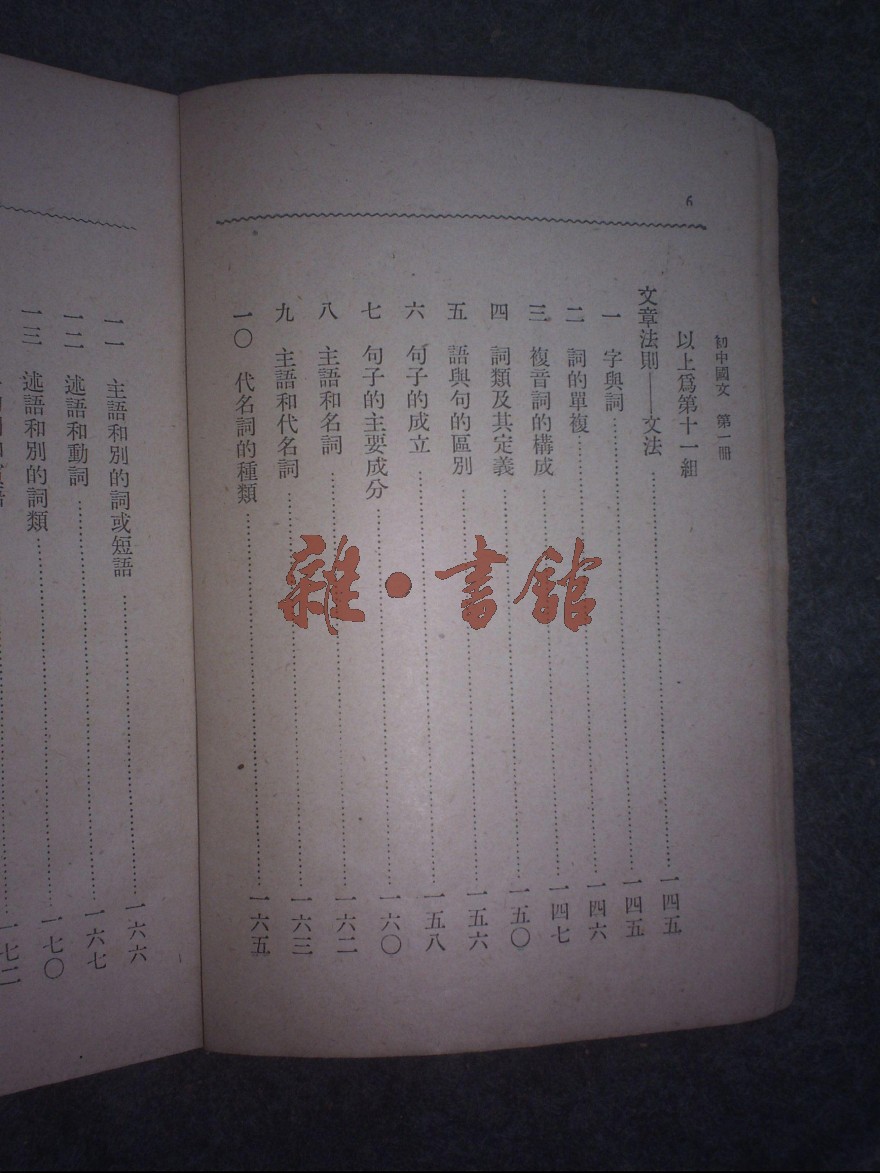 6
初中國文　第一冊
以上爲第十一組
文章法則——文法……一四五
一　字與詞……一四五
二　詞的單複……一四六
三　複音詞的構成……一四七
四　詞類及其定義……一五〇
五　語與句的區別……一五六
六　句子的成立……一五八
七　句子的主要成分……一六〇
八　主語和名詞……一六二
九　主語和代名詞……一六三
一〇　代名詞的種類……一六五
雜•書館
一一　主語和別的詞或短語……一六六
一二　述語和動詞……一六七
一三　述語和別的詞類……一七〇
一七二